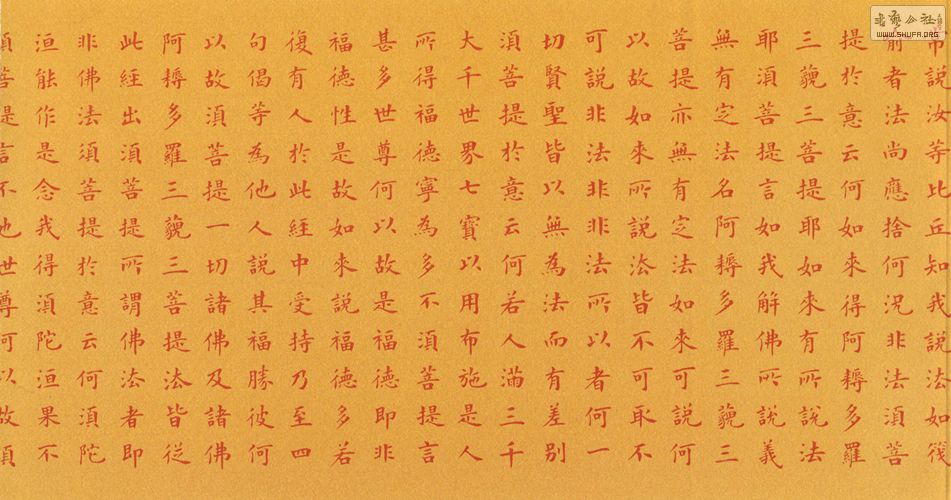 說汝等比丘知我說法如筏
者法尚應捨何況非法須菩
提於意云何如來得阿耨多羅
三藐三菩提耶如來有所說法
耶須菩提言如我解佛所說義
無有定法名阿耨多羅三藐三
菩提亦無有定法如來可說何
以故如來所說法皆不可取不
可說非法非非法所以者何一
切賢聖皆以無為法而有差別
須菩提於意云何若人滿三千
大千世界七寶以用布施是人
所得福德寧為多不須菩提言
甚多世尊何以故是福德即非
福德性是故如來說福德多若
復有人於此經中受持乃至四
句偈等為他人說其福勝彼何
以故須菩提一切諸佛及諸佛
阿耨多羅三藐三菩提法皆從
此經出須菩提所謂佛法者即
非佛法須菩提於意云何須陀
洹能作是念我得須陀洹果不
須菩提言不也世尊何以故須
書藝公社
WWW.SHUFA.ORG